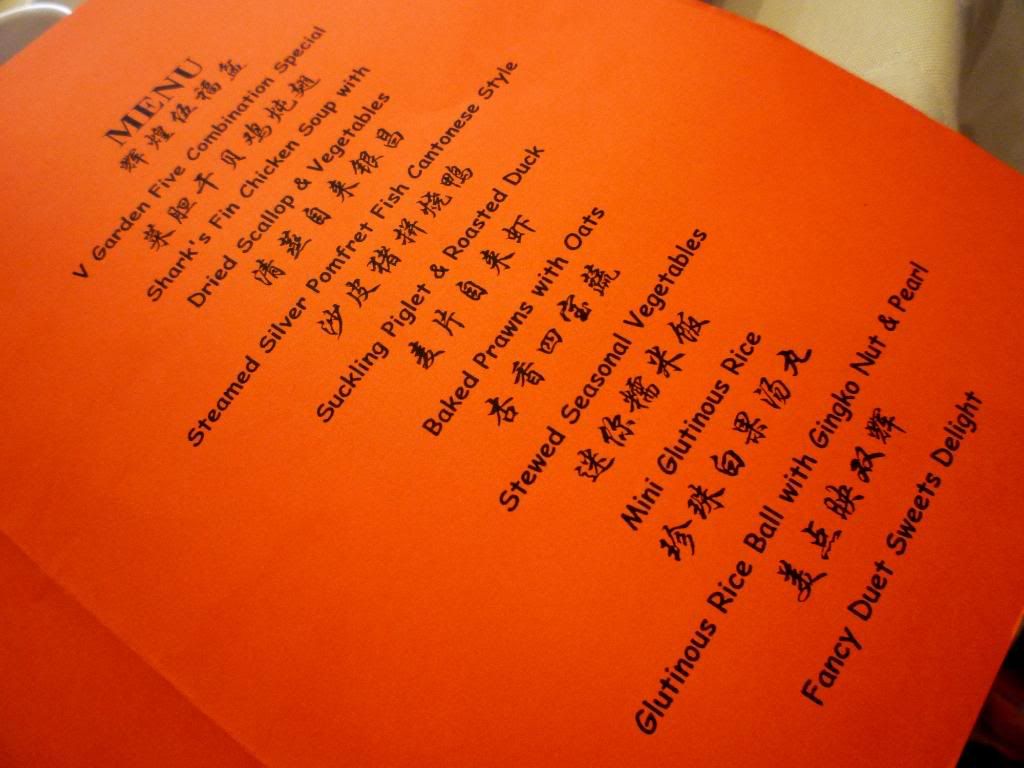 MENU
辉煌伍福盆
V Garden Five Combination Special
菜胆干贝鸡炖翅
Shark's Fin Chicken Soup with
Dried Scallop & Vegetables
清蒸自来银昌
Steamed Silver Pomfret Fish Cantonese Style
沙皮猪拼烧鸭
Suckling Piglet & Roasted Duck
麦片自来虾
Baked Prawns with Oats
杏香四宝蔬
Stewed Seasonal Vegetables
迷你糯米饭
Mini Glutinous Rice
珍珠白果汤丸
Glutinous Rice Ball with Gingko Nut & Pearl
美点映双辉
Fancy Duet Sweets Delight